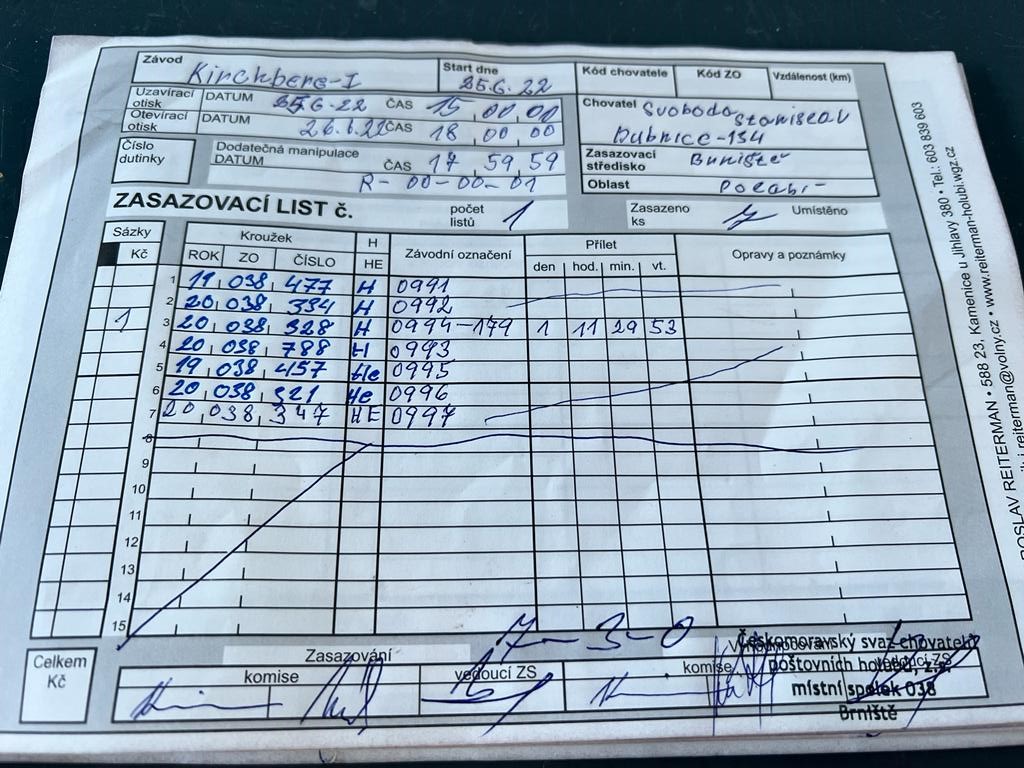 Závod Kirchberg-I Start dne 25.6.22 Kód chovatele Kód ZO Vzdálenost (km)
Uzavírací otisk DATUM 25.6-22 ČAS 15 00 00
Otevírací otisk DATUM 26.6.22 ČAS 18 00 00
Chovatel Svoboda Stanislav
Dubnice-134
Číslo dutinky
Dodatečná manipulace
DATUM ČAS 17 59 59
R-00-00-01
Zasazovací středisko
Oblast Polabí-
ZASAZOVACÍ LIST č. počet listů 1 Zasazeno ks 7 Umístěno
Sázky Kč
Kroužek H HE Závodní označení Přílet Opravy a poznámky
ROK ZO ČÍSLO den hod. min. vt.
1 19 038 477 H 0991
2 20 038 334 H 0992
1 3 20 038 328 H 0994-179 1 11 29 53
4 20 038 788 H 0993
5 19 038 457 He 0995
6 20 038 321 He 0996
7 20 038 347 HE 0997
8
9
10
11
12
13
14
15
7-3-0
Celkem Kč
Zasazování
komise vedoucí ZS komise vedoucí ZS
Českomoravský svaz chovatelů
poštovních holubů, z.s.
místní spolek 038
Brniště
OSLAV REITERMAN • 588 23, Kamenice u Jihlavy 380 • Tel.: 603 839 603
reiterman@volny.cz • www.reiterman-holubi.wgz.cz